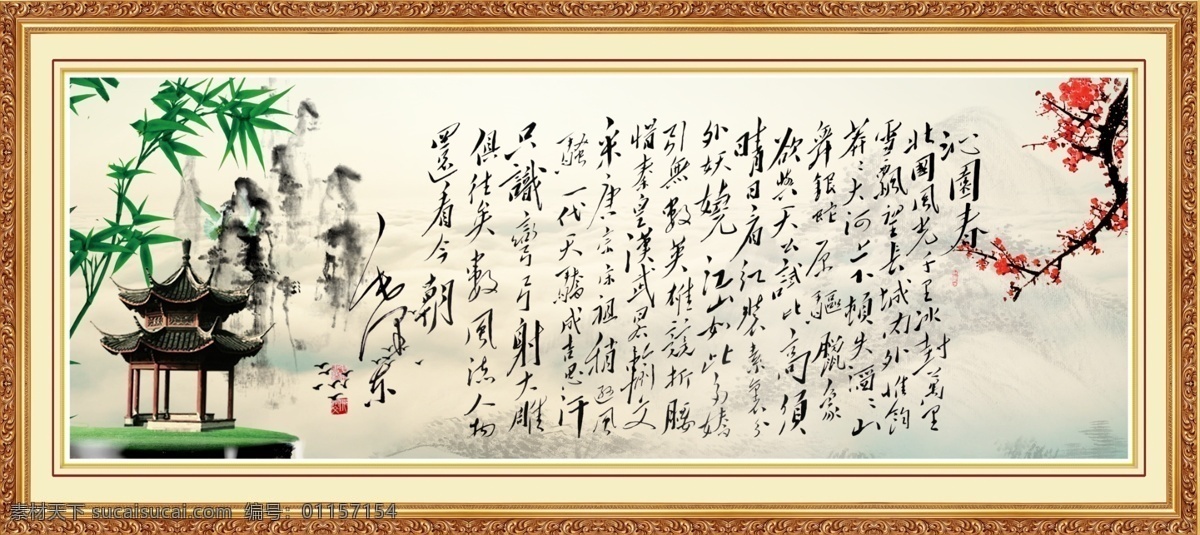 沁園春
北國風光千里冰封萬里
雪飄望長城内外惟餘
莽〻大河上下頓失滔〻山
舞銀蛇原驅臘象
欲與天公試比高須
晴日看红裝素裹分
外妖嬈江山如此多嬌
引無數英雄競折腰
惜秦皇漢武略輸文
采唐宗宋祖稍遜風
騷一代天驕成吉思汗
只識彎弓射大雕
俱往矣數風流人物
還看今朝
毛澤東
素材天下 sucaisucai.com 编号：01157154